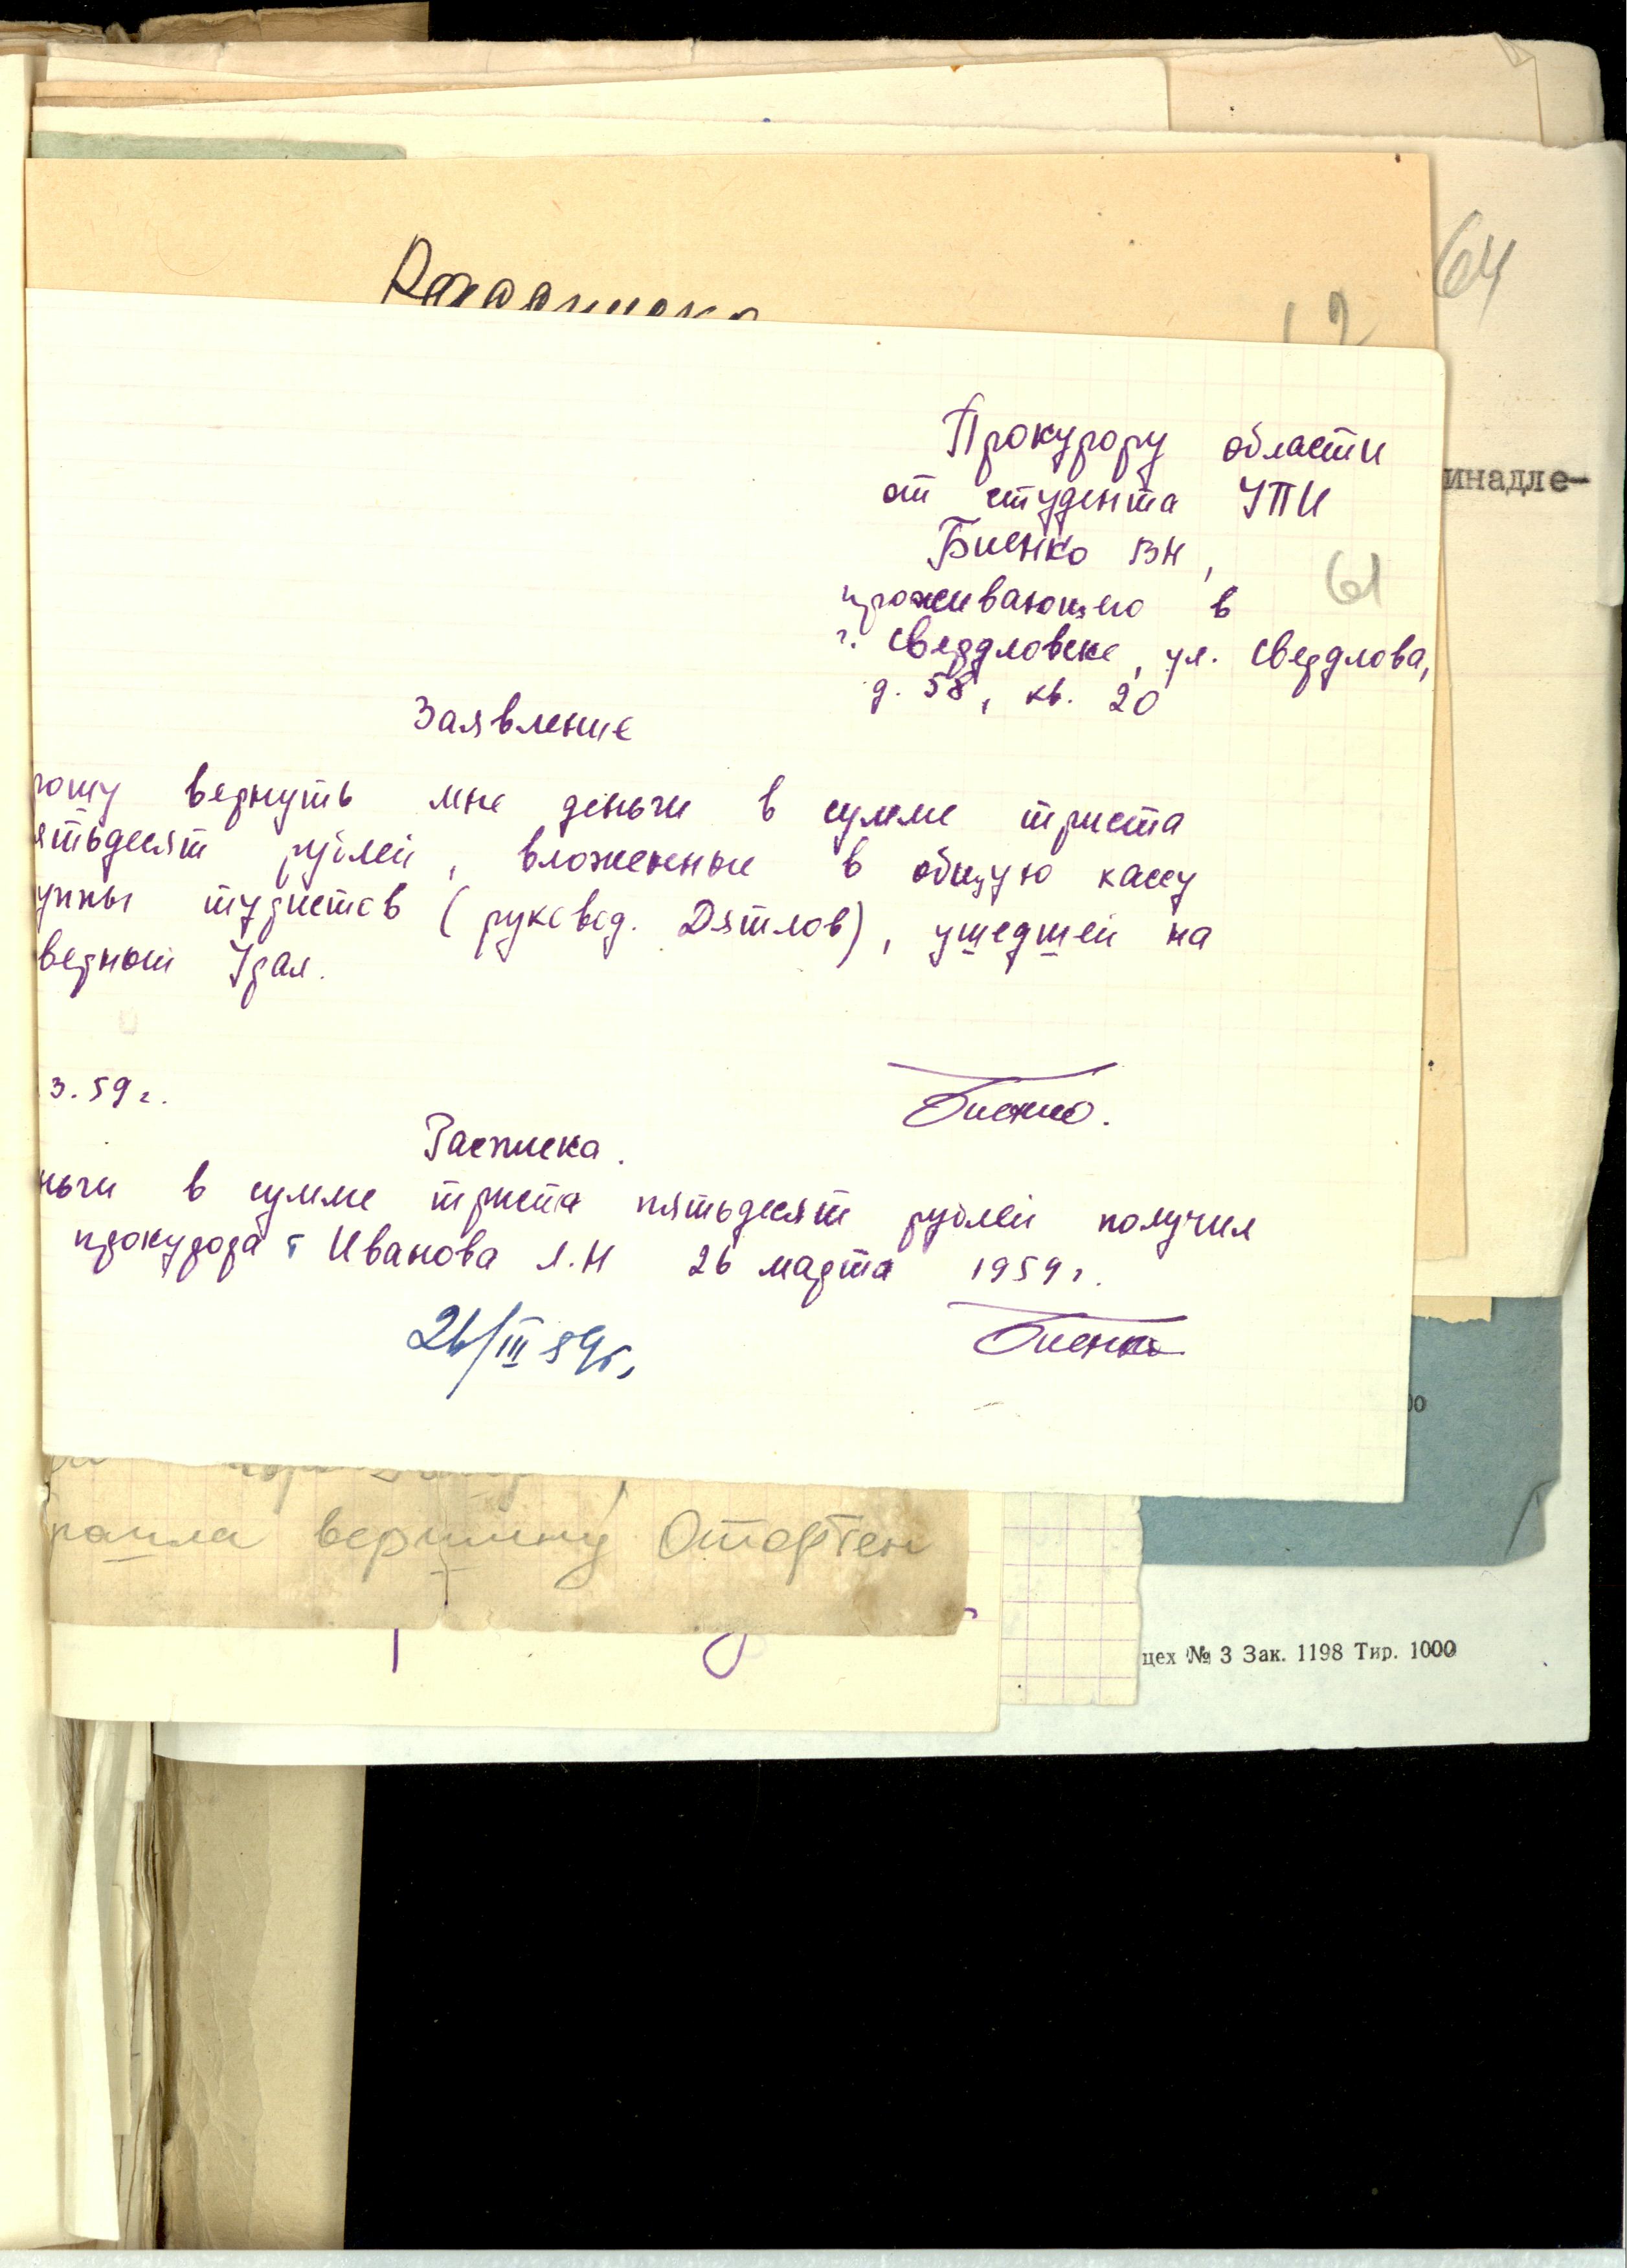 Расписка
64
12
Прокурору области
от студента УПИ
Биенко ВН,
61
проживающего в
г. Свердловске, ул. Свердлова,
д. 58, кв. 20
инадле-
Заявление
рошу вернуть мне деньги в сумме триста
ятьдесят рублей, вложенные в общую кассу
уппы туристов (руковод. Дятлов), ушедшей на
верный Урал.
3.59 г.
Биенко.
Расписка.
ньги в сумме триста пятьдесят рублей получил
прокурора т Иванова Л.Н 26 марта 1959 г.
26/III 59г.
Биенко
00
вершину Отортен
цех № 3 Зак. 1198 Тир. 1000